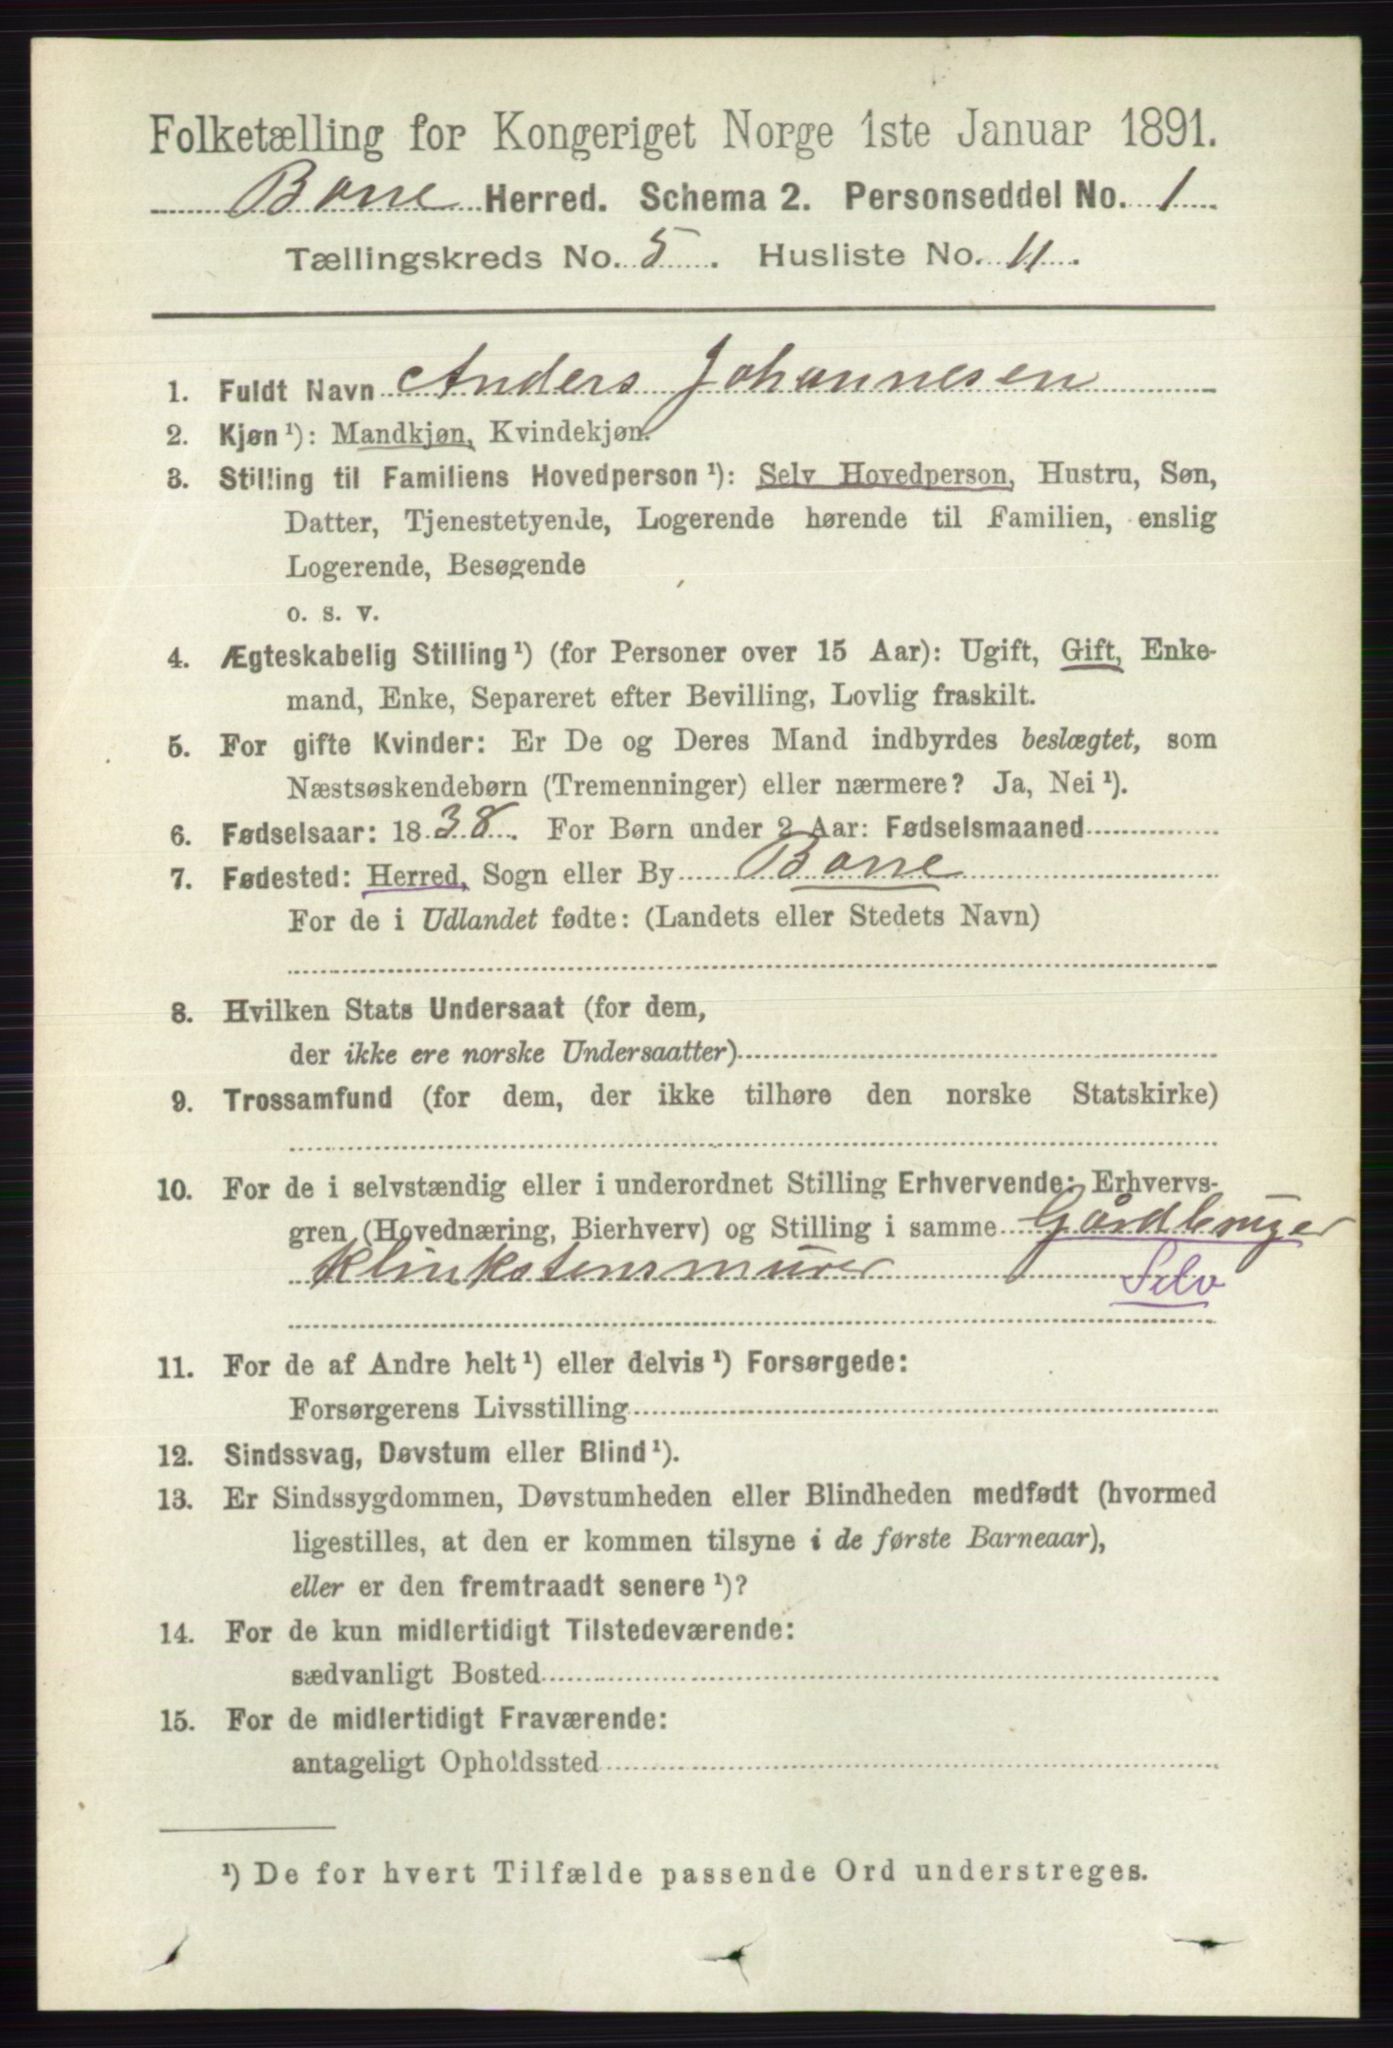 Folketælling for Kongeriget Norge 1ste Januar 1891.
Borre Herred. Schema 2. Personseddel No. 1
Tællingskreds No. 5. Husliste No. 11.
1. Fuldt Navn Anders Johannesen
2. Kjøn¹): Mandkjøn, Kvindekjøn.
3. Stilling til Familiens Hovedperson¹): Selv Hovedperson, Hustru, Søn,
Datter, Tjenestetyende, Logerende hørende til Familien, enslig
Logerende, Besøgende
o. s. v.
4. Ægteskabelig Stilling¹) (for Personer over 15 Aar): Ugift, Gift, Enke-
mand, Enke, Separeret efter Bevilling, Lovlig fraskilt.
5. For gifte Kvinder: Er De og Deres Mand indbyrdes beslægtet, som
Næstsøskendebørn (Tremenninger) eller nærmere? Ja, Nei¹).
6. Fødselsaar: 1838. For Børn under 2 Aar: Fødselsmaaned
7. Fødested: Herred, Sogn eller By Borre
For de i Udlandet fødte: (Landets eller Stedets Navn)
8. Hvilken Stats Undersaat (for dem,
der ikke ere norske Undersaatter)
9. Trossamfund (for dem, der ikke tilhøre den norske Statskirke)
10. For de i selvstændig eller i underordnet Stilling Erhvervende: Erhvervs-
gren (Hovednæring, Bierhverv) og Stilling i samme Gårdbruger
klinkstensmurer Selv
11. For de af Andre helt¹) eller delvis¹) Forsørgede:
Forsørgerens Livsstilling
12. Sindssvag, Døvstum eller Blind¹).
13. Er Sindssygdommen, Døvstumheden eller Blindheden medfødt (hvormed
ligestilles, at den er kommen tilsyne i de første Barneaar),
eller er den fremtraadt senere¹)?
14. For de kun midlertidigt Tilstedeværende:
sædvanligt Bosted
15. For de midlertidigt Fraværende:
antageligt Opholdssted
¹) De for hvert Tilfælde passende Ord understreges.